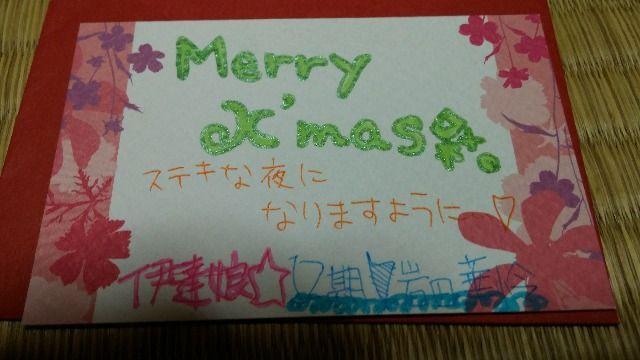 Merry
X'mas
ステキな夜に
なりますように♡
伊達娘☆ 期 岩田華怜